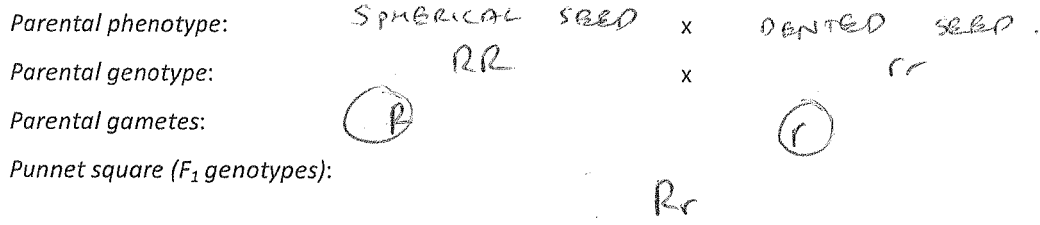 Parental phenotype: SPHERICAL SEED x DENTED SEED.
Parental genotype: RR x rr
Parental gametes: R r
Punnet square (F₁ genotypes):
Rr